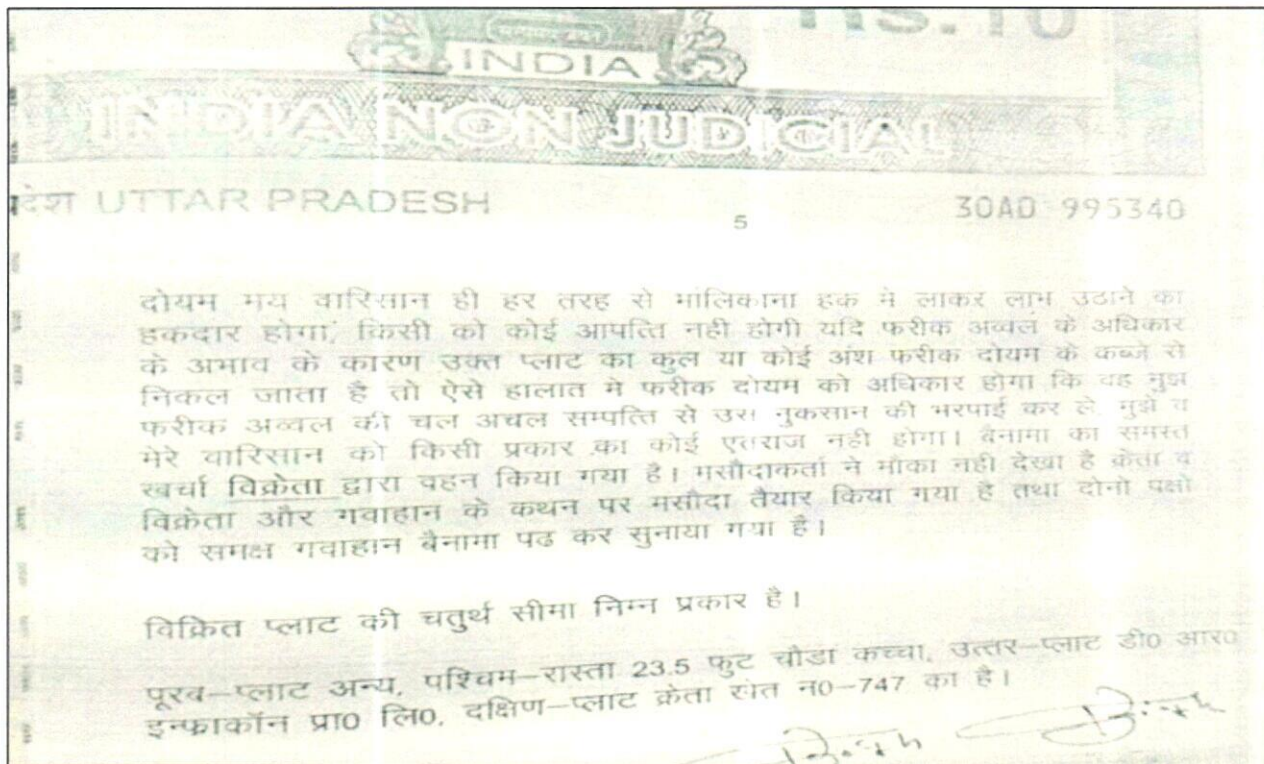 Rs.10
INDIA
INDIA NON JUDICIAL
देश UTTAR PRADESH
30AD 995340
5
दोयम मय वारिसान ही हर तरह से मालिकाना हक मे लाकर लाभ उठाने का
हकदार होगा, किसी को कोई आपत्ति नही होगी यदि फरीक अव्वल के अधिकार
के अभाव के कारण उक्त प्लाट का कुल या कोई अंश फरीक दोयम के कब्जे से
निकल जाता है तो ऐसे हालात मे फरीक दोयम को अधिकार होगा कि वह मुझ
फरीक अव्वल की चल अचल सम्पत्ति से उस नुकसान की भरपाई कर ले, मुझे व
मेरे वारिसान को किसी प्रकार का कोई एतराज नही होगा। बैनामा का समस्त
खर्चा विक्रेता द्वारा वहन किया गया है। मसौदाकर्ता ने मौका नही देखा है क्रेता व
विक्रेता और गवाहान के कथन पर मसौदा तैयार किया गया है तथा दोनो पक्षो
को समक्ष गवाहान बैनामा पढ कर सुनाया गया है।
विक्रित प्लाट की चतुर्थ सीमा निम्न प्रकार है।
पूरब-प्लाट अन्य, पश्चिम-रास्ता 23.5 फुट चौडा कच्चा, उत्तर-प्लाट डी0 आर0
इन्फ्राकॉन प्रा0 लि0, दक्षिण-प्लाट क्रेता खेत न0-747 का है।